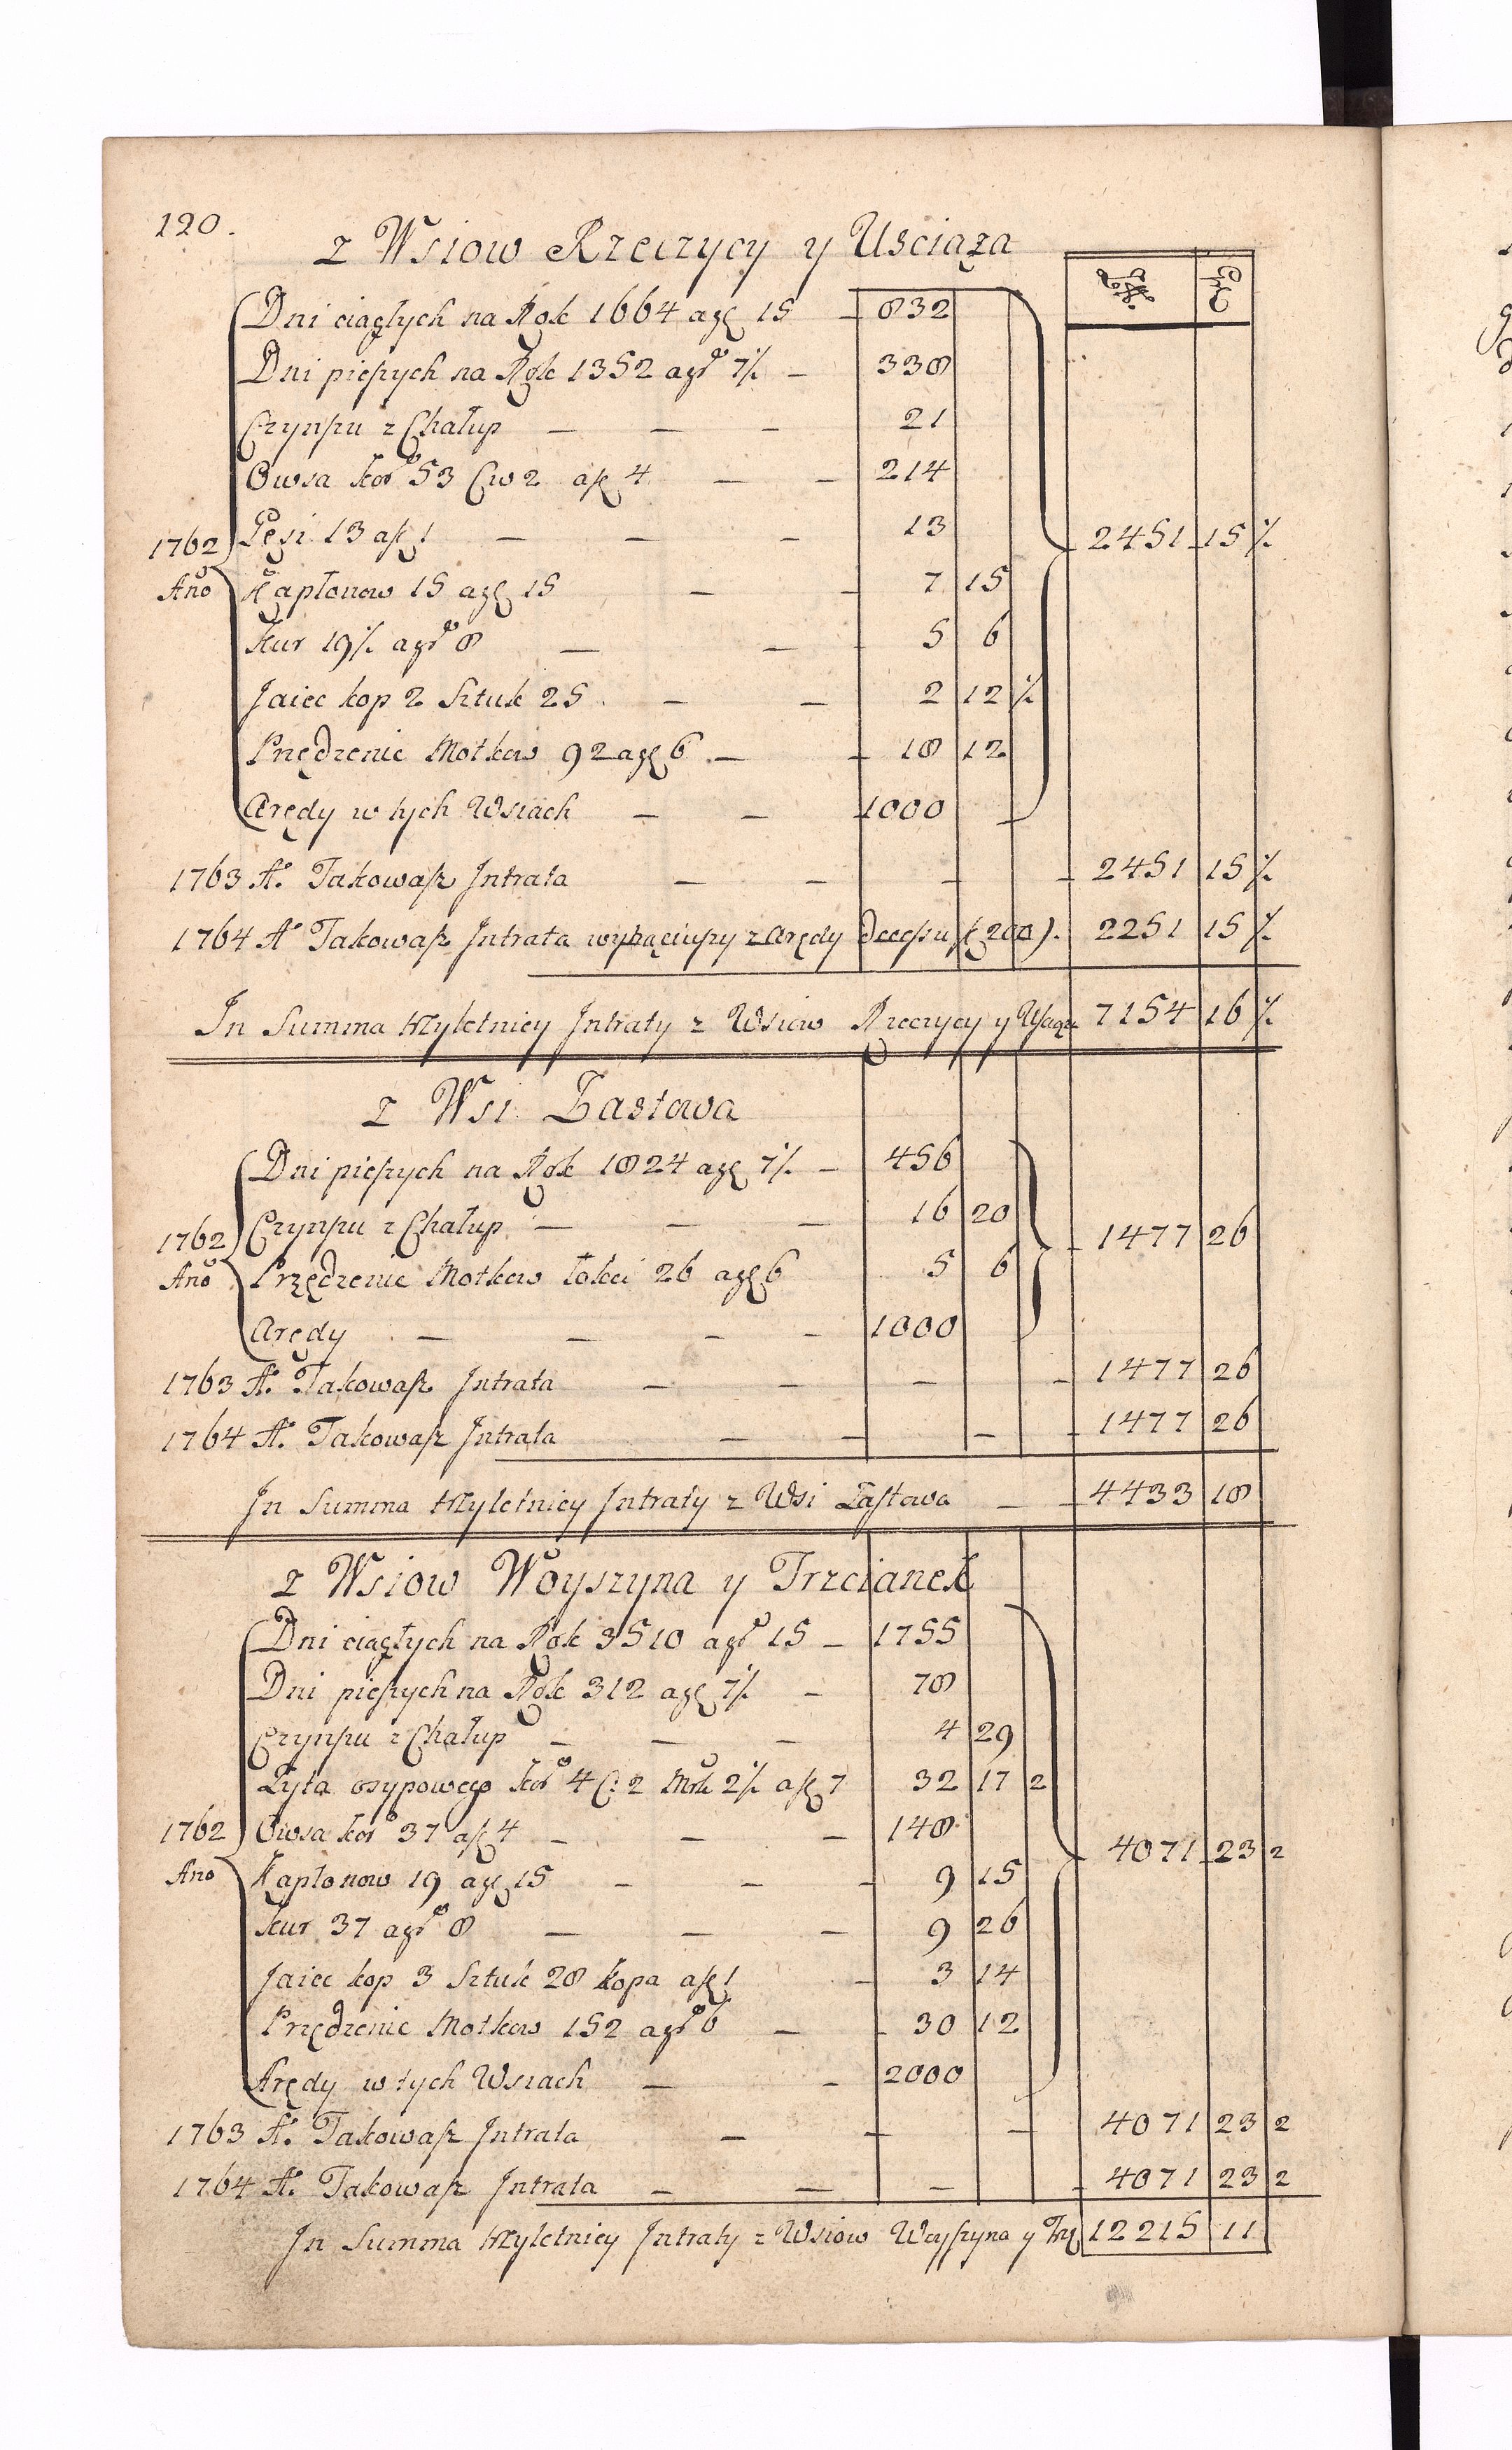 120.
z Wsiow Rzeczycy y Usciąża
Zł. Gr.
Dni ciągłych na Rok 1664 a gr 15 — 832
Dni pieszych na Rok 1352 a gr 7½ — 338
Czynszu z Chałup — — — 21
Owsa kor 53 Cw 2 a zł 4 — — 214
Gęsi 13 a zł 1 — — — 13
1762 Ano 2451 15 ½
Kapłonow 15 a gr 15 — — 7 15
Kur 19½ a gr 8 — — 5 6
Jaiec kop 2 Sztuk 25 . — — 2 12 ½
Przędzenie Motkow 92 a gr 6 . — — 18 12
Arędy w tych Wsiach — — 1000
1763 Aº Takowasz Intrata — — — — 2451 15 ½
1764 Aº Takowasz Intrata wytrąciwszy z Arędy Decessu zł 200). 2251 15 ½
In Summa trzyletniey Intraty z Wsiow Rzeczycy y Usciąża 7154 16 ½
z Wsi Zastowa
Dni pieszych na Rok 1824 a gr 7½ — 456
Czynszu z Chałup — — — 16 20
1762 Ano 1477 26
Przędzenie Motkow łokci 26 a gr 6 5 6
Arędy — — — — 1000
1763 Aº Takowasz Intrata — — — — 1477 26
1764 Aº Takowasz Intrata — — — — 1477 26
In Summa trzyletniey Intraty z Wsi Zastowa — — 4433 18
z Wsiow Woyszyna y Trzcianek
Dni ciągłych na Rok 3510 a gr 15 — 1755
Dni pieszych na Rok 312 a gr 7½ — 78
Czynszu z Chałup — — — 4 29
Żyta osypowego kor 4 C: 2 Mrk 2½ a zł 7 32 17 2
1762 Owsa kor 37 a zł 4 — — — 148
Ano 4071 23 2
Kapłonow 19 a gr 15 — — — 9 15
Kur 37 a gr 8 — — — 9 26
Jaiec kop 3 Sztuk 28 kopa a zł 1 — 3 14
Przędzenie Motkow 152 a gr 6 — — 30 12
Arędy w tych Wsiach — — 2000
1763 Aº Takowasz Intrata — — — 4071 23 2
1764 Aº Takowasz Intrata — — — — 4071 23 2
In Summa trzyletniey Intraty z Wsiow Woyszyna y Trz 12215 11